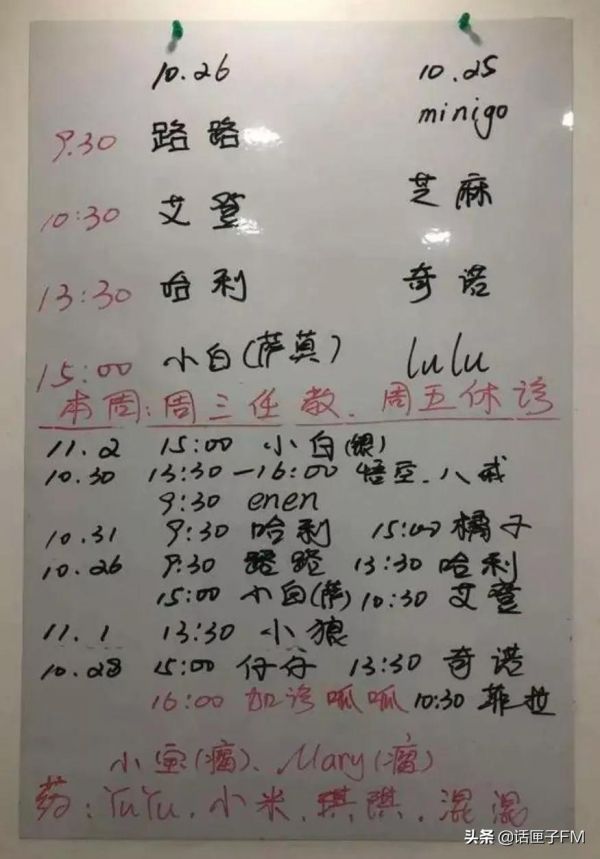 10.26 10.25
minigo
9.30 路路
10:30 艾登 芝麻
13:30 哈利 奇诺
15:00 小白(萨莫) lulu
本周:周三任教、周五休诊
11.2 15:00 小白(银)
10.30 13:30—16:00 悟空、八戒
9:30 enen
10.31 9:30 哈利 15:00 橘子
10.26 9:30 路路 13:30 哈利
15:00 小白(萨) 10:30 艾登
11.1 13:30 小狼
10.28 15:00 仔仔 13:30 奇诺
16:00 加诊呱呱 10:30 菲拉
小宝(瘤)、Mary(瘤)
药:YuYu、小米、琪琪、混混
头条 @话匣子FM